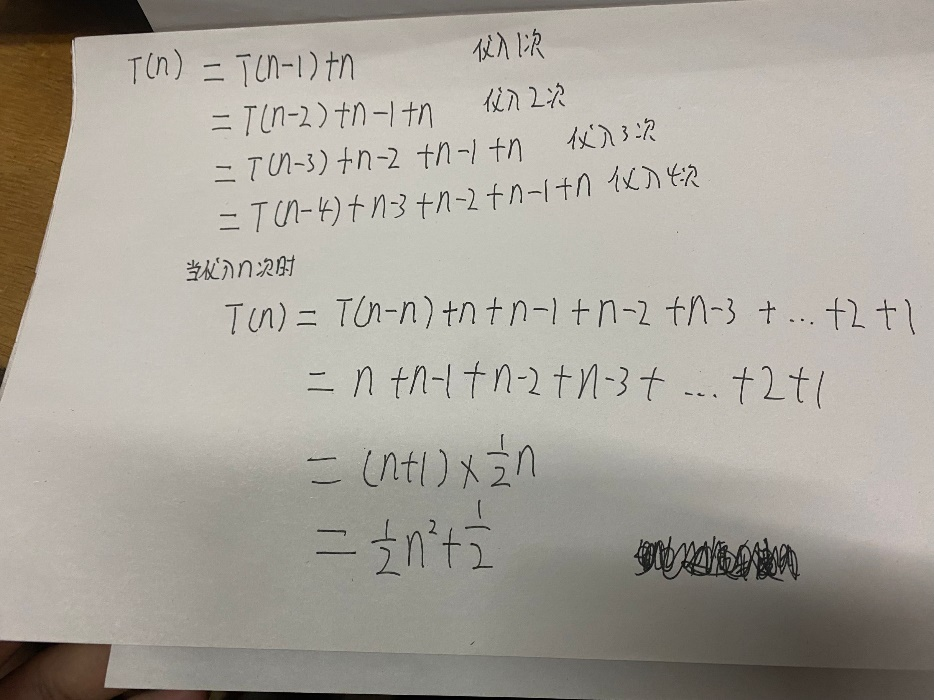 T(n) = T(n-1)+n 代入1次
= T(n-2)+n-1+n 代入2次
= T(n-3)+n-2+n-1+n 代入3次
= T(n-4)+n-3+n-2+n-1+n 代入4次
当代入n次时
T(n) = T(n-n)+n+n-1+n-2+n-3+...+2+1
= n+n-1+n-2+n-3+...+2+1
= (n+1)×½n
= ½n²+½